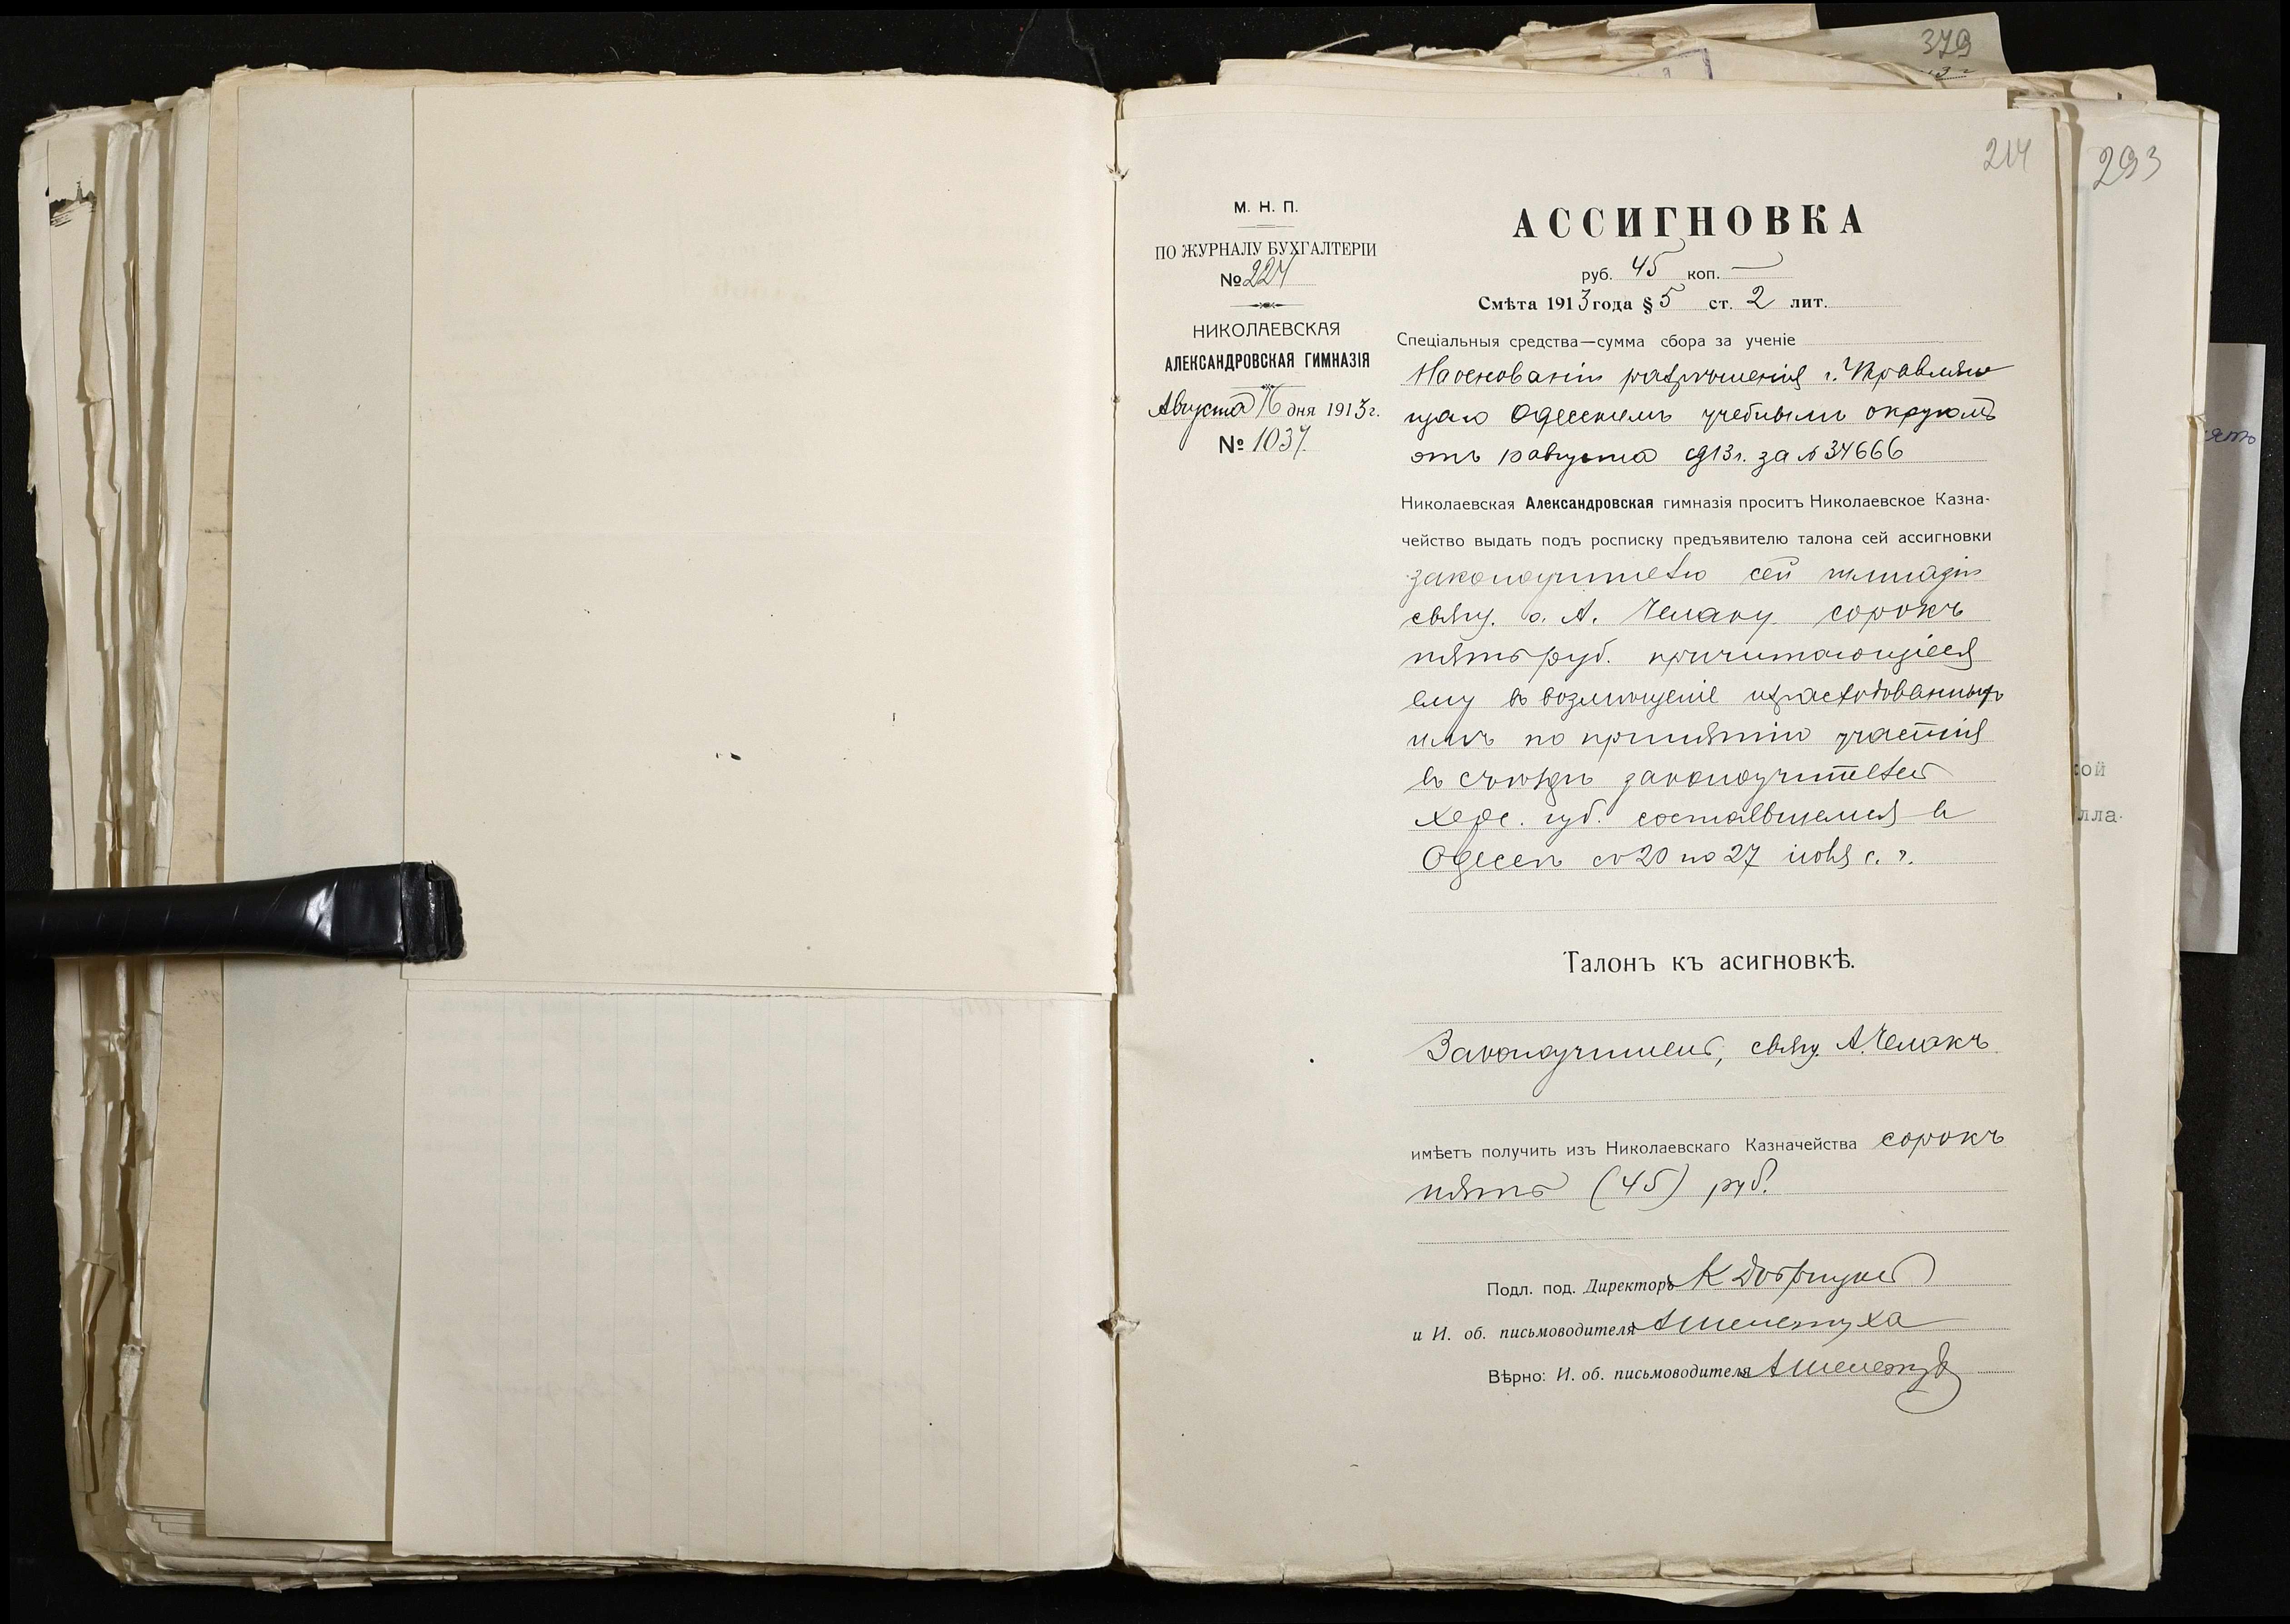 379
214
293
М. Н. П.
ПО ЖУРНАЛУ БУХГАЛТЕРІИ
№ 224
НИКОЛАЕВСКАЯ
АЛЕКСАНДРОВСКАЯ ГИМНАЗІЯ
Августа 16 дня 1913 г.
№ 1037.
АССИГНОВКА
руб. 45 коп. —
Смѣта 1913 года § 5 ст. 2 лит.
Спеціальныя средства—сумма сбора за ученіе
На основаніи разрѣшенія г. Управляю
щаго Одесскимъ учебнымъ округомъ
отъ 10 августа 1913 г. за № 34666
Николаевская Александровская гимназія проситъ Николаевское Казна-
чейство выдать подъ росписку предъявителю талона сей ассигновки
законоучителю сей гимназіи
свящ. о. А. Чемаку сорокъ
пять руб. причитающіеся
ему въ возмѣщеніе израсходованныхъ
имъ по принятію участія
въ съѣздѣ законоучителей
Херс. губ. состоявшемся въ
Одессѣ съ 20 по 27 іюня с. г.
Талонъ къ асигновкѣ.
Законоучитель, свящ. А. Чемакъ
имѣетъ получить изъ Николаевскаго Казначейства сорокъ
пять (45) руб.
Подл. под. Директоръ К
и И. об. письмоводителя А Шелестуха
Вѣрно: И. об. письмоводителя А Шелесту
ять
кой
лла-